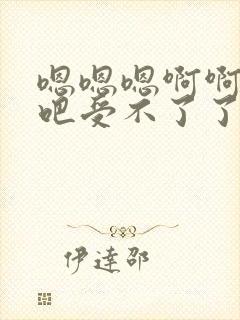 嗯嗯嗯啊啊
吧受不了了
伊達邵